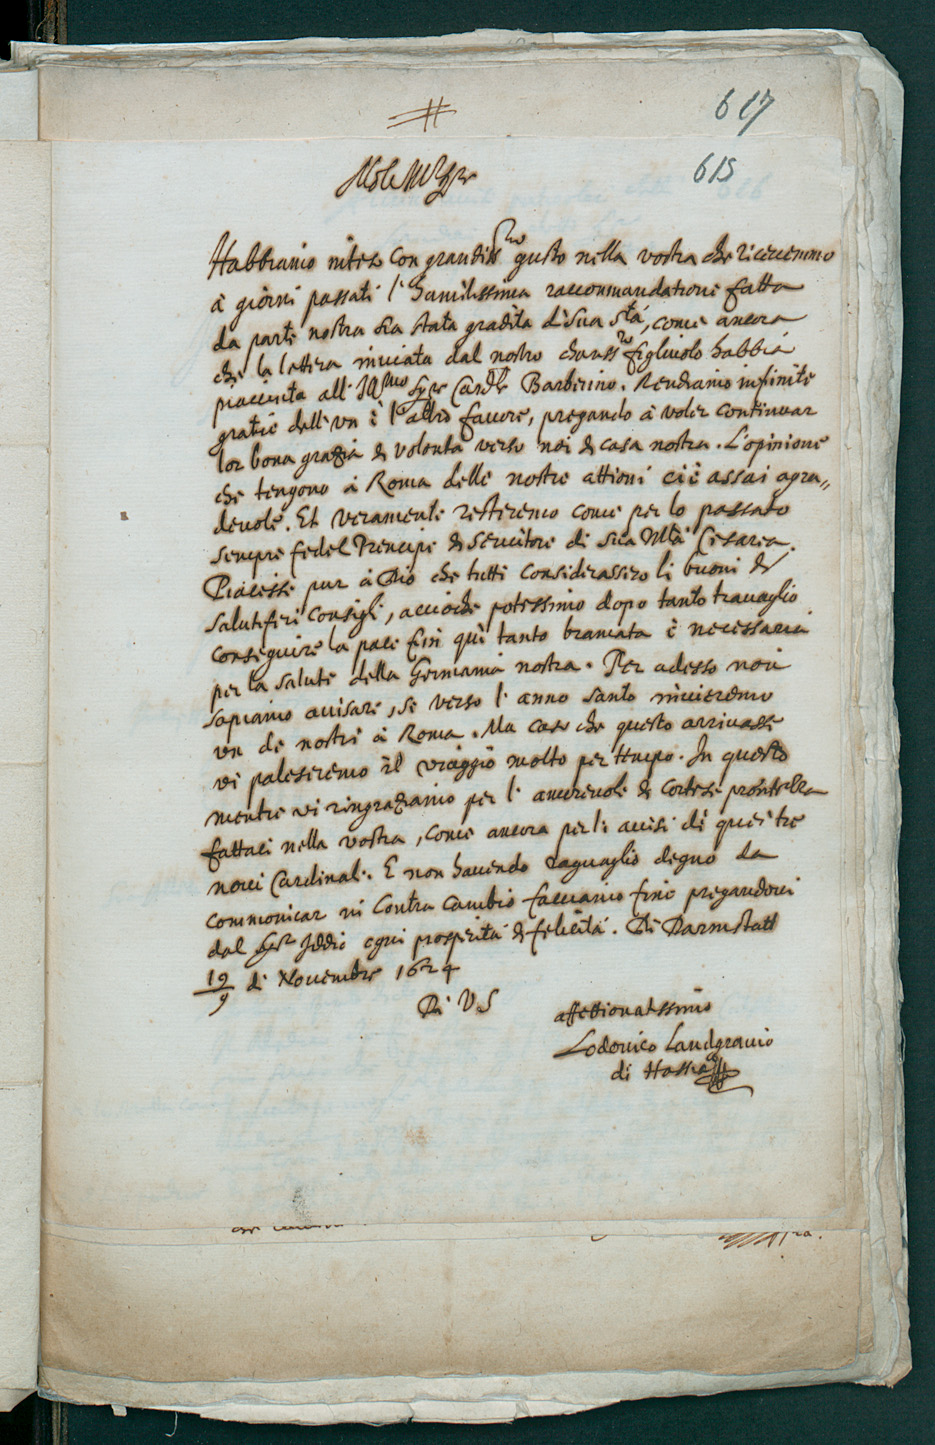 617
615
Molto Mag.re
Habbiamo inteso con grandiss.mo gusto nella vostra che ricevemmo
à giorni passati l' humilissima raccommandatione fatta
da parte nostra sia stata gradita di sua S.tà, come ancora
che la lettera inviata dal nostro chariss.mo figliuolo habbia
piacciuta all' Ill.mo Sg.re Card.le Barberino. Rendiamo infinite
gratie dell' un è l' altro favore, pregando à voler continuar
lor bona grazia & volontà verso noi & casa nostra. L'opinione
che tengono à Roma delle nostre attioni ci è assai agra„
devole. Et veramente resteremo come per lo passato
sempre fedel Prencipe & servitore di sua M.tà Cesarea.
Piacesse pur à Dio che tutti considerassero li buoni &
salutiferi consigli, acciochè potessimo dopo tanto travaglio
conseguire la pace fin quì tanto bramata è necessaria
per la salute della Germania nostra. Per adesso non
sapiamo avisare, se verso l' anno santo invieremo
un de nostri à Roma. Ma caso che questo arrivasse
vi paleseremo il viaggio molto per tempo. In questo
mentre vi ringraziamo per l' amorevole & cortese prontezza
fattaci nella vostra, come ancora per li avisi di quei tre
novi Cardinali. E non havendo raguaglio degno da
communicar in contra cambio facciamo fine pregandovi
dal Iddio ogni prosperità & felicità. Di Darmstatt
19/9 di Novembre 1624
Di V S
affettionatissimo
Lodovico Landgravio
di Hassia